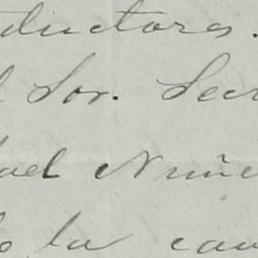 ductores.
l Sor. Secr
ael Nuñe
la cau